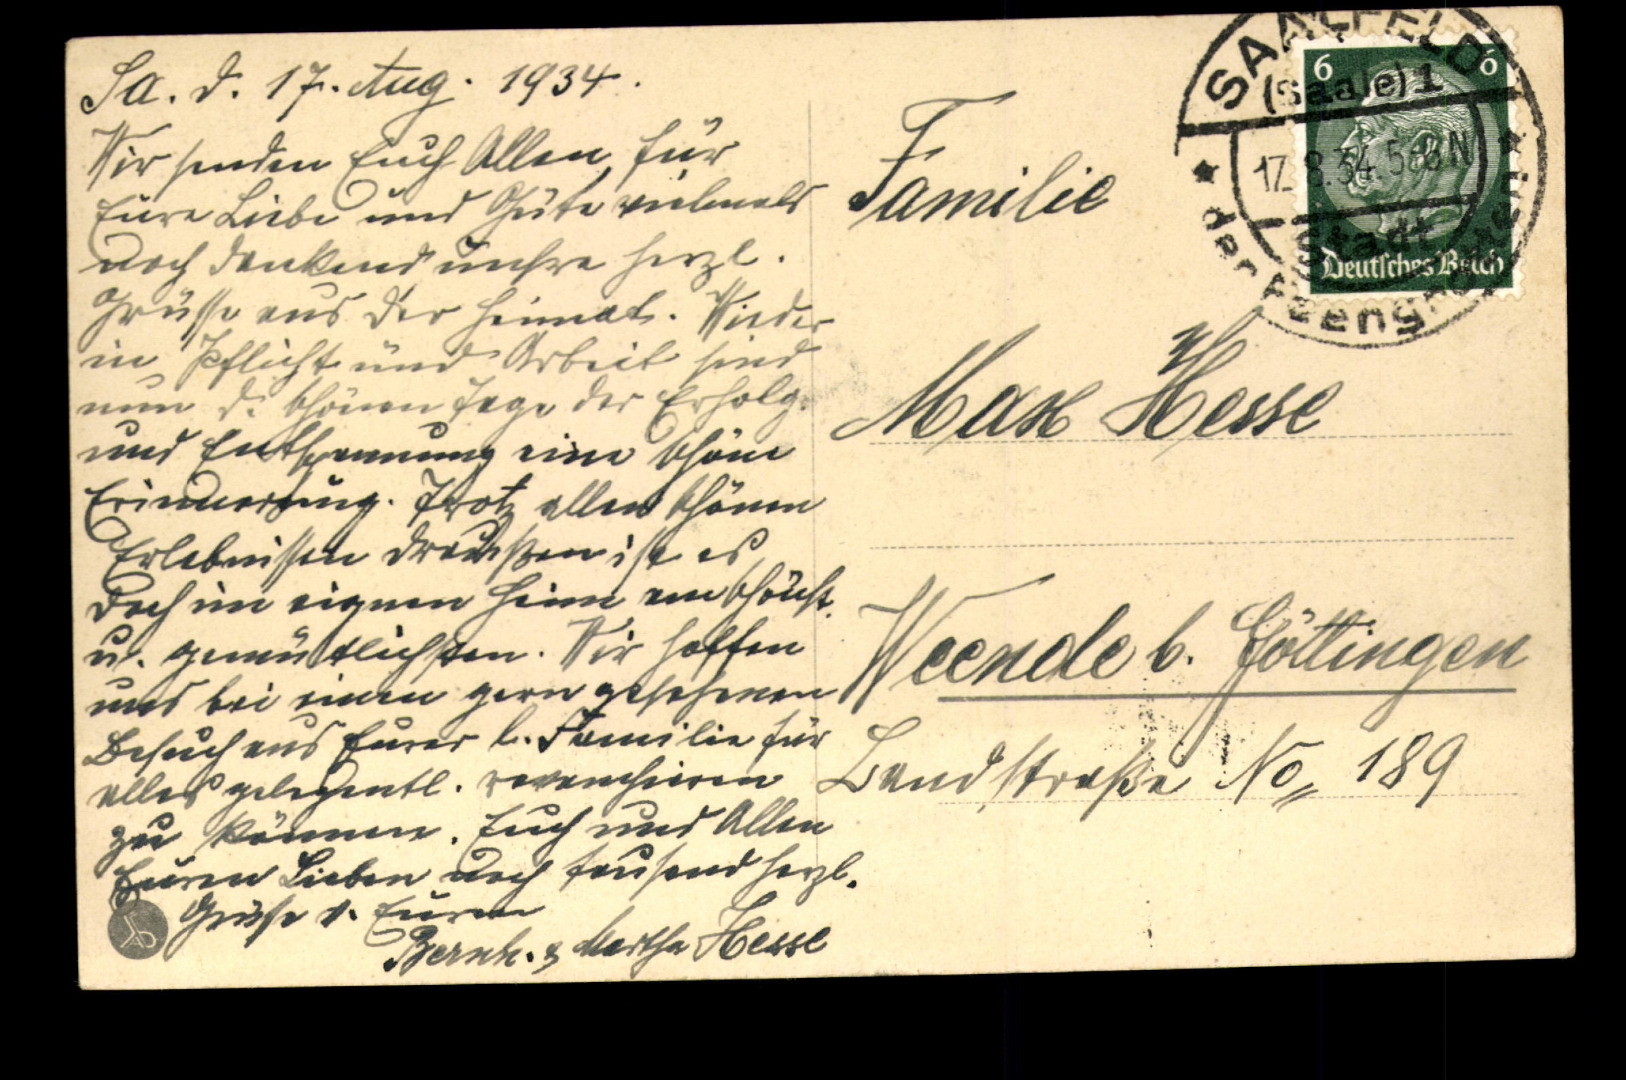 Sa. d. 17. Aug. 1934.
Wir senden Euch Allen für
Eure Liebe und Güte vielmals
noch dankend unsre herzl.
Grüsse aus der Heimat. Wieder
in Pflicht und Arbeit sind
nun d. schönen Tage der Erholg.
und Entspannung eine schöne
Erinnerung. Trotz allen schönen
Erlebnissen draußen ist es
doch im eignen Heim am schönst.
u. gemütlichsten. Wir hoffen
uns bei einem gern gesehenen
Besuch aus Eurer l. Familie für
alles gelegentl. revanchieren
zu können. Euch und Allen
Euren Lieben noch tausend herzl.
Grüße v. Euren
Bernh. & Martha Hesse
Familie
Max Hesse
Weende b. Göttingen
Landstraße No 189
6 6
Deutsches Reich
SAALFELD
(Saale) 1
17.8.34. 5-6 N
Stadt
der Feengrotten